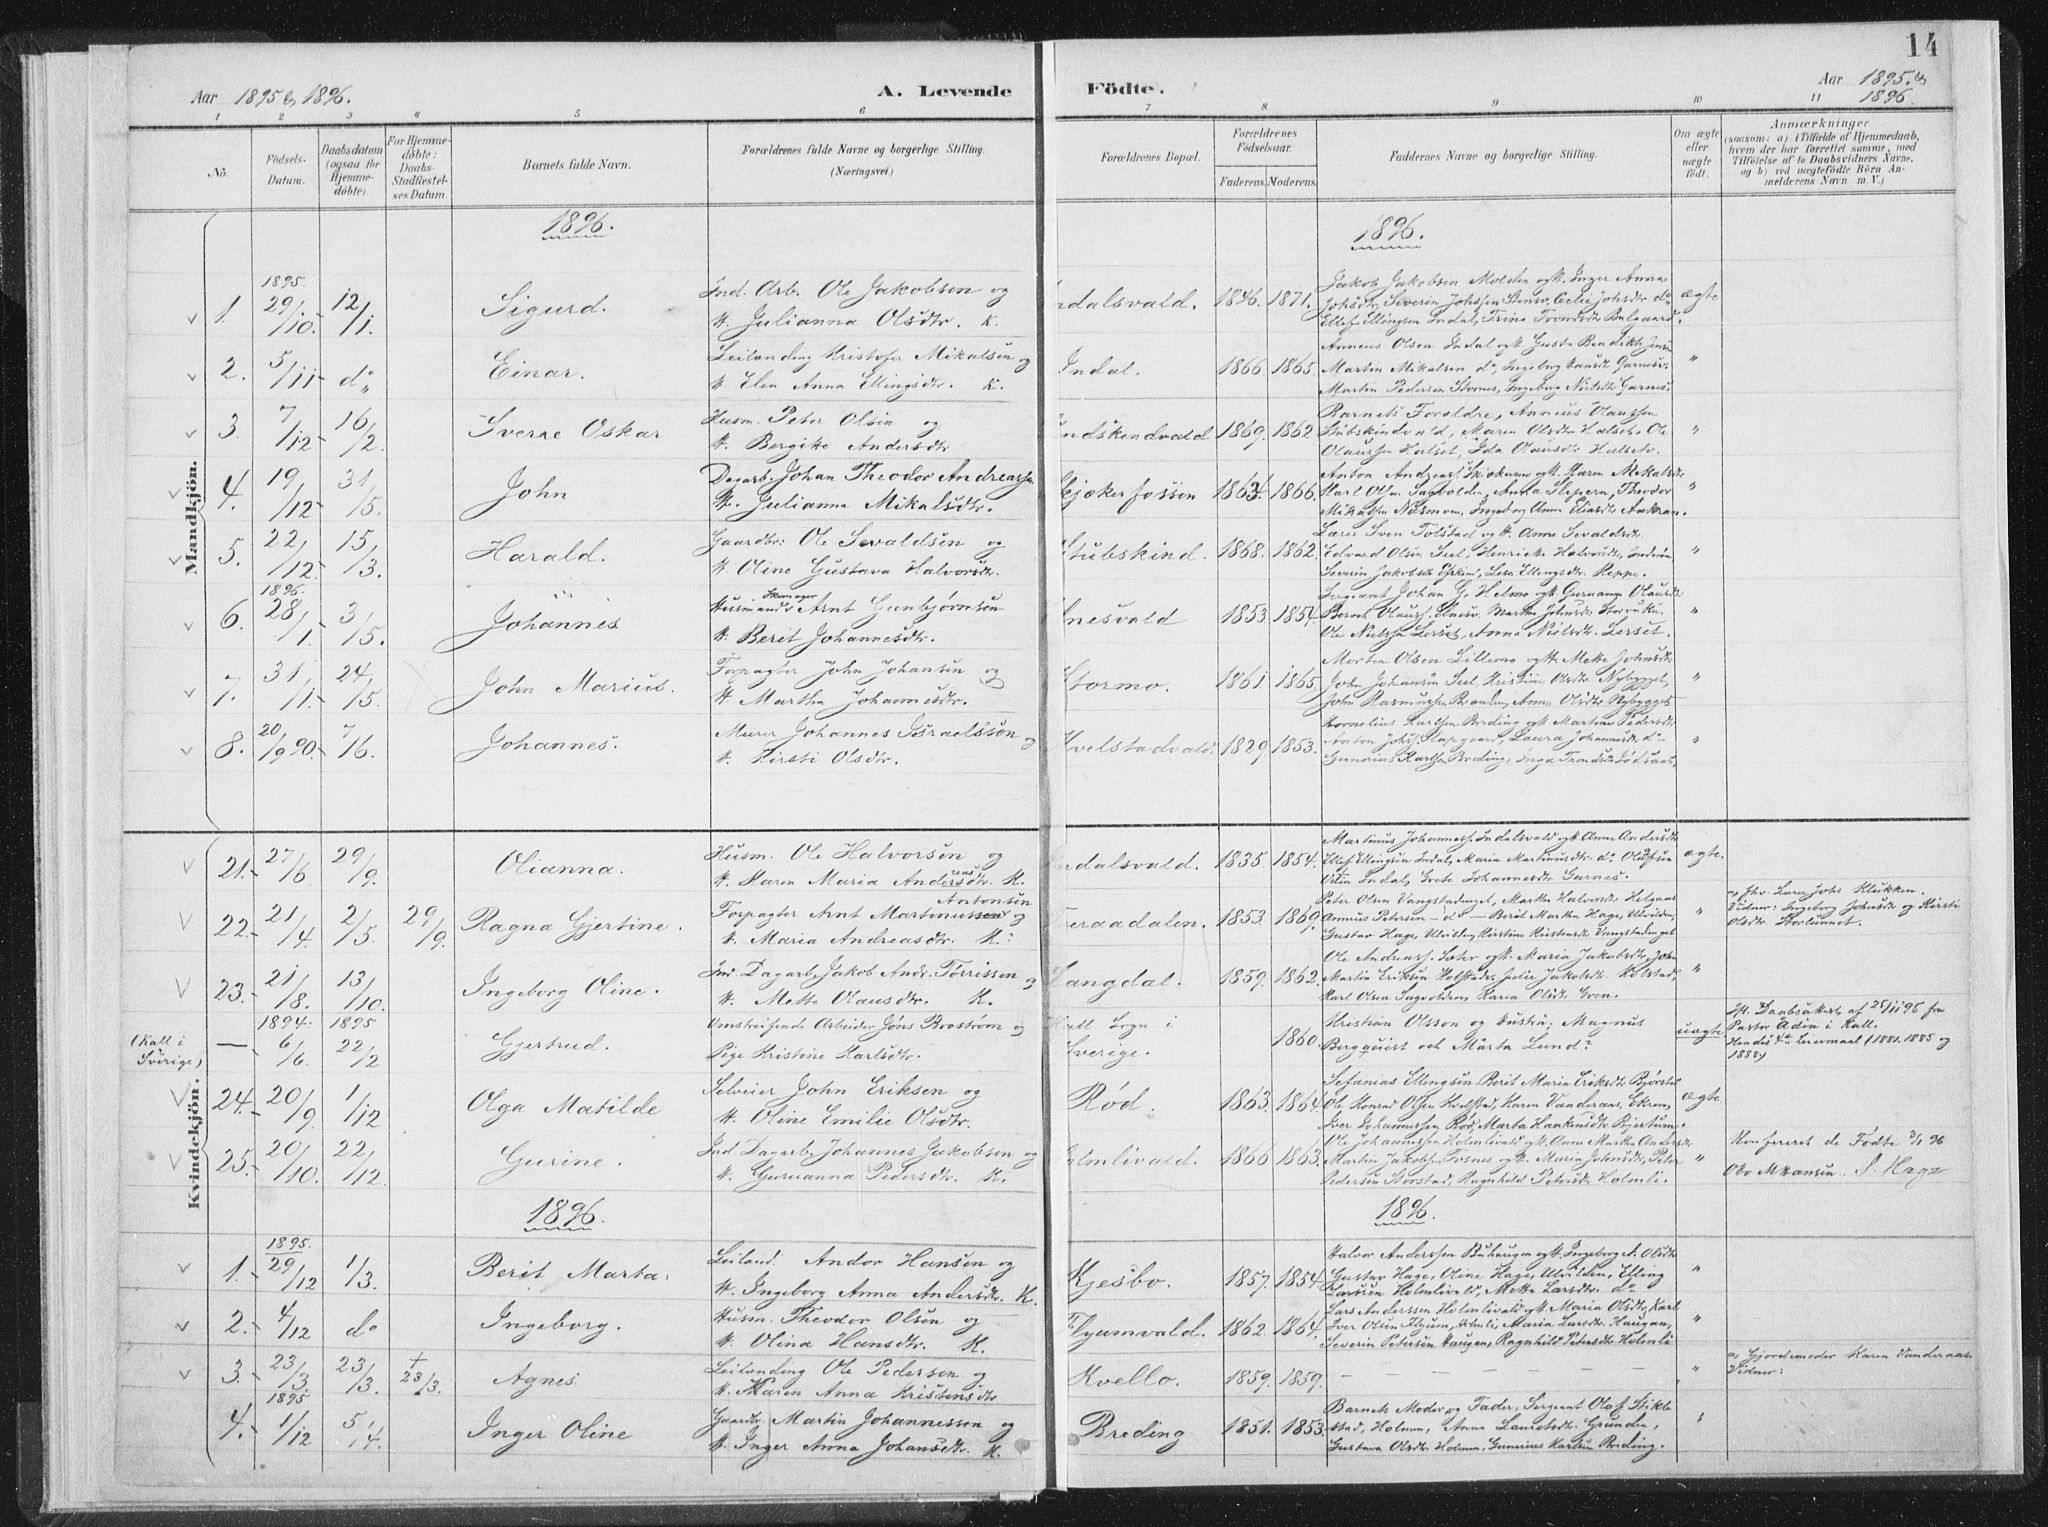 14
Aar 1895 & 1896.
A. Levende
Födte.
Aar 1895. &
1896
1 2 3 4 5 6 7 8 9 10 11
No.
Födsels-
Datum.
Daabsdatum
(ogsaa for
Hjemme-
döbte).
For Hjemme-
döbte:
Daabs-
Stadfæstel-
ses Datum.
Barnets fulde Navn.
Forældrenes fulde Navne og borgerlige Stilling
(Næringsvei.)
Forældrenes Bopæl.
Forældrenes
Födselsaar.
Faderens. Moderens.
Faddernes Navne og borgerlige Stilling.
Om ægte
eller
uægte
födt.
Anmærkninger
(saasom: a) i Tilfælde af Hjemmedaab,
hvem der har forrettet samme, med
Tilföielse af to Daabsvidners Navne.
og b) ved uægtefödte Börn An-
melderens Navn m. V.)
Mandkjön.
1896. 1896.
1895.
1. 29/10. 12/1. Sigurd. Ind. Arb. Ole Jakobsen og
K. Julianna Olsdtr. K.
Indalsvald. 1846. 1871. Jakob Jakobsen Molden og K. Inger Anna
Ellef Ellingsen Indal, Trina Trondsdt Balgaard. ægte
2. 5/11 do Einar. Leilænding Kristofer Mikalsen og
K. Elen Anna Ellingsdtr. K.
Indal. 1866. 1865. Anneus Olsen Indal og K. Gusta Bendikte
Martin Mikalsen do, Ingeborg
Martin Pedersen Stornes, Ingeborg Nielsdt Garnes. "
3. 7/12 16/2. Sverre Oskar Husm. Peter Olsen og
K. Bergitte Andersdtr
1869. 1862 Barnets Forældre, Anneus Olaussen
Stubskindvald, Maren Olsdtr Halset, Ole
Olaussen Halset, Ida Olausdtr Halset. "
4. 19/12 31/5. John Dagarb. Johan Theodor Andreassen
K. Julianna Mikalsdtr.
Skjækerfossen 1864. 1866.
Karl Olsen Sagvolden, Anna
Mikalsen Næsmoen, Ingeborg Anna Eliasdt Aakran. "
5. 22/12. 15/3. Harald. Gaardbr: Ole Sevaldsen og
K. Oline Gustava Halvorsdt.
Stubskind. 1868. 1862. Lærer Sven Tolstad og K. Anna Sevaldsdt
Edvard Olsen Sul, Henrikke Halvorsdt, Inderøen
Severin Jakobsen, Lisa Ellingsdtr. Reppe. "
1896.
6. 28/1. 3/5. Johannes Husmand Skomager Arnt Gunbjørnsen
K. Berit Johannesdtr.
Elnesvald 1853. 1854. Sergeant Johan G. Helmo og K. Guruanna Olausdt
Ole Nielsen Lerset, Anna Nielsdt. Lerset. "
7. 31/1. 24/5. John Marius. Forpagter John Johansen og
K. Martha Johannesdtr.
Stormo. 1861. 1865. Morten Olsen Lillemo og K. Mette Johnsdt
John Johansen Sul, Kristine Olsdt Nybygget,
John Rasmussen, Anna Olsdt Nybygget "
8. 20/9 90. 7/16. Johannes. Murer Johannes Israelsson og
K. Kirsti Olsdtr.
Kvelstadvald. 1829. 1853. Kornelius Karlsen Breding og K. Martine Pedersdt
Anton Johs. Laura Johannesdt do
Gunerius Karlsen Breding, Inga "
Kvindekjön.
21. 27/6. 29/9. Olianna. Husm. Ole Halvorsen og
K. Karen Maria Andreasdtr. K.
Indalsvald. 1835. 1854. Martinus Johannes. Indalsvald og K. Anna Andersdt
Ellef Ellingsen Indal, Maria Martinusdtr. do Olaf
Indal, Grete Johannesdtr Garnes. ægte.
22. 21/4. 2/5. 29/9. Ragna Gjertine. Forpagter Arnt Martinus Antonsen og
K. Maria Andreasdtr. K.
Veraadalen. 1853. 1869. Peter Olsen Vangstadinget, Martha Halvorsdt Helgaas
Anneus Petersen - do - Berit Martha Hage, Ulvilden,
Gustav Hage, Ulvilden, Kirstine Kristensdt Vangstadinget "
a, Fhv. Lærer Johs Kleikken.
Vidner: Ingeborg Johnsdt og Kirsti
Olsdt Storlunet.
23. 21/8. 13/10. Ingeborg Oline. Ind. Dagarb. Jakob Andr. Tørrissen og
K. Mette Olausdtr. K.
Langdal. 1859. 1862. Ole Andreas. Sæter og K. Maria Jakobsdt, John
Martin Eriksen Holstad, Julie Jakobsdt Kolstad,
Karl Olsen Sagvolden, Karen Olsdt Green. "
(Kall i
Sverige)
1894. 1895
— 6/6. 22/2 Gjertrud. Omstreifende Arbeider Jöns Broström og
Pige Kristine Karlsdtr.
Kall Sogn i
Sverige. 1860. Kristian Olsson og hustru; Magnus
Bergquist och Märta Lund? uægte
Ifl. Daabsattest af 25/11 95 fra
Pastor Ådin i Kall.
Hendes 4de Leiermaal (1881. 1885 og
1888)
24. 20/9. 1/12 Olga Matilde Selveier John Eriksen og
K. Oline Emilie Olsdtr.
Rød. 1863. 1864. Sefanias Ellingsen Berit Maria Eriksdt Bjørstad
Ole Konrad Olsen Kvelstad, Karen Vanderaas, Ekren,
Iver Johannessen Rød, Marta Haakensdt Bjertum. ægte
25. 20/10. 22/12. Gurine. Ind. Dagarb. Johannes Jakobsen og
K. Guruanna Pedersdtr. K.
Holmlivald. 1866 1863. Ole Johannessen Holmlivald og K. Anne Martha Andersdt
Martin Jakobsen Fosnes og K. Maria Johnsdt, Peter
Pedersen Storstad, Ragnhild Petersdt Holmli. "
Konfereret de Födte 3/1 96
Oko Mkansen. S. Hage
1896. 1896.
1895.
1. 29/12 1/3. Berit Marta. Leiland. Andor Hansen og
K. Ingeborg Anna Andersdtr. K.
Kjesbo. 1857. 1854. Halvor Anderssen Buhaugen og K. Ingeborg A. Olsdt
Gustav Hage, Oline Hage, Ulvilden, Elling
Larssen Holmlivald, Mette Larsdtr. do "
2. 4/12 do Ingeborg. Husm. Theodor Olsen og
K. Olina Hansdtr. K.
Flyumvald. 1862. 1864. Lars Anderssen Holmlivald og K. Maria Olsdt, Karl
Iver Olsen Flyum, Holmli, Maria Larsdt, Haugan,
Severin Petersen Haugan, Ragnhild Petersdt Holmli "
3. 23/3. 23/3. † 23/3. Agnes. Leilænding Ole Pedersen og
K. Karen Anna Kristensdtr
Kvello. 1859. 1859. — — — — — "
a, Gjordemoder Karen Vanderaas.
Vidner:
1895
4. 1/12 5/4. Inger Oline Gaardbr. Martin Johannessen og
K. Inger Anna Johansdtr. K.
Breding 1851. 1853. Barnets Moder og Fader, Sergeant Olaf Stikle-
stad, Holmen, Anna Lauritsdt. Grunden,
Gustava Olsdt Holmen, Gunerius Karlsen Breding. "